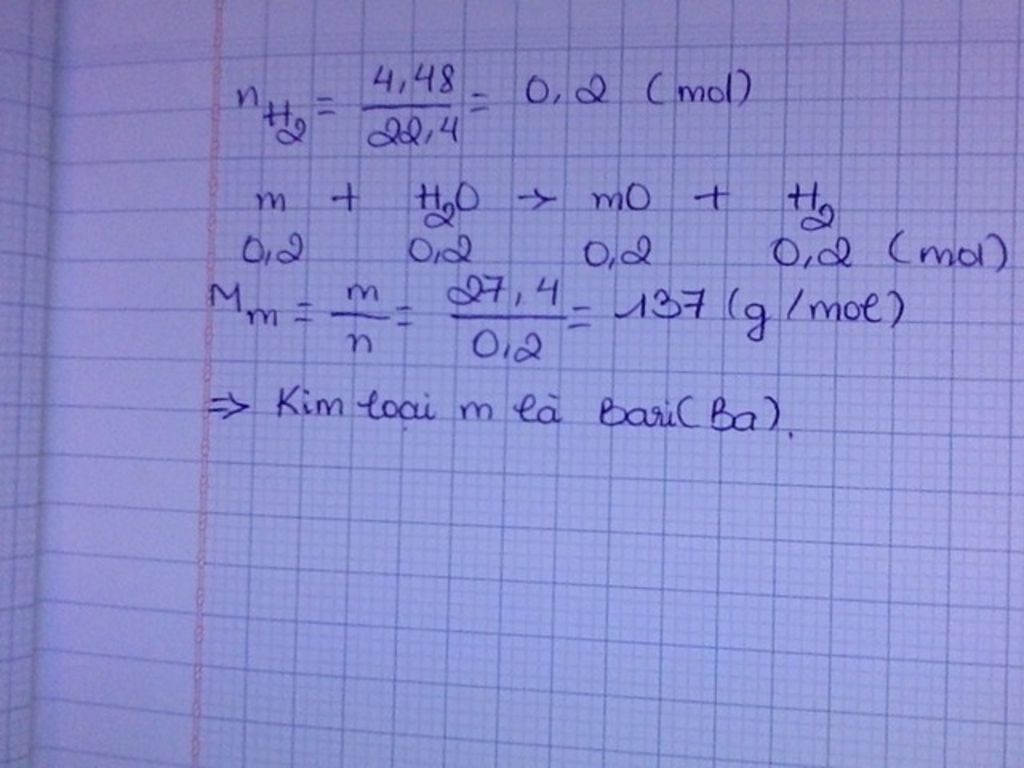 n_H₂ = 4,48/22,4 = 0,2 (mol)
m + H₂O → mO + H₂
0,2 0,2 0,2 0,2 (mol)
M_m = m/n = 27,4/0,2 = 137 (g/mol)
⇒ Kim loại m là Bari (Ba).